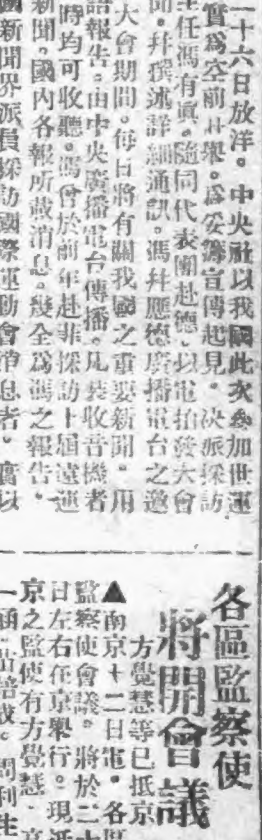 二十六日放洋。中央社以我國此次參加世運
實爲空前壯舉。爲妥籌宣傳起見。決派採訪
主任馮有眞。隨同代表團赴德。以電拍發大會
聞。幷撰述詳細通訊。馮幷應德廣播電台之邀
大會期間。每日將有關我國之重要新聞。用
語報告。由中央廣播電台傳播。凡裝收音機者
時均可收聽。馮曾於前年赴菲採訪十屆遠運
新聞。國內各報所載消息。幾全爲馮之報告。
國新聞界派員採訪國際運動會消息者。實以
各區監察使
將開會議
方覺慧等已抵京
▲南京十二日電。各區
監察使會議。將於二十
日左右在京舉行。現抵
京之監使有方覺慧.高
一涵.苗培成.周利生